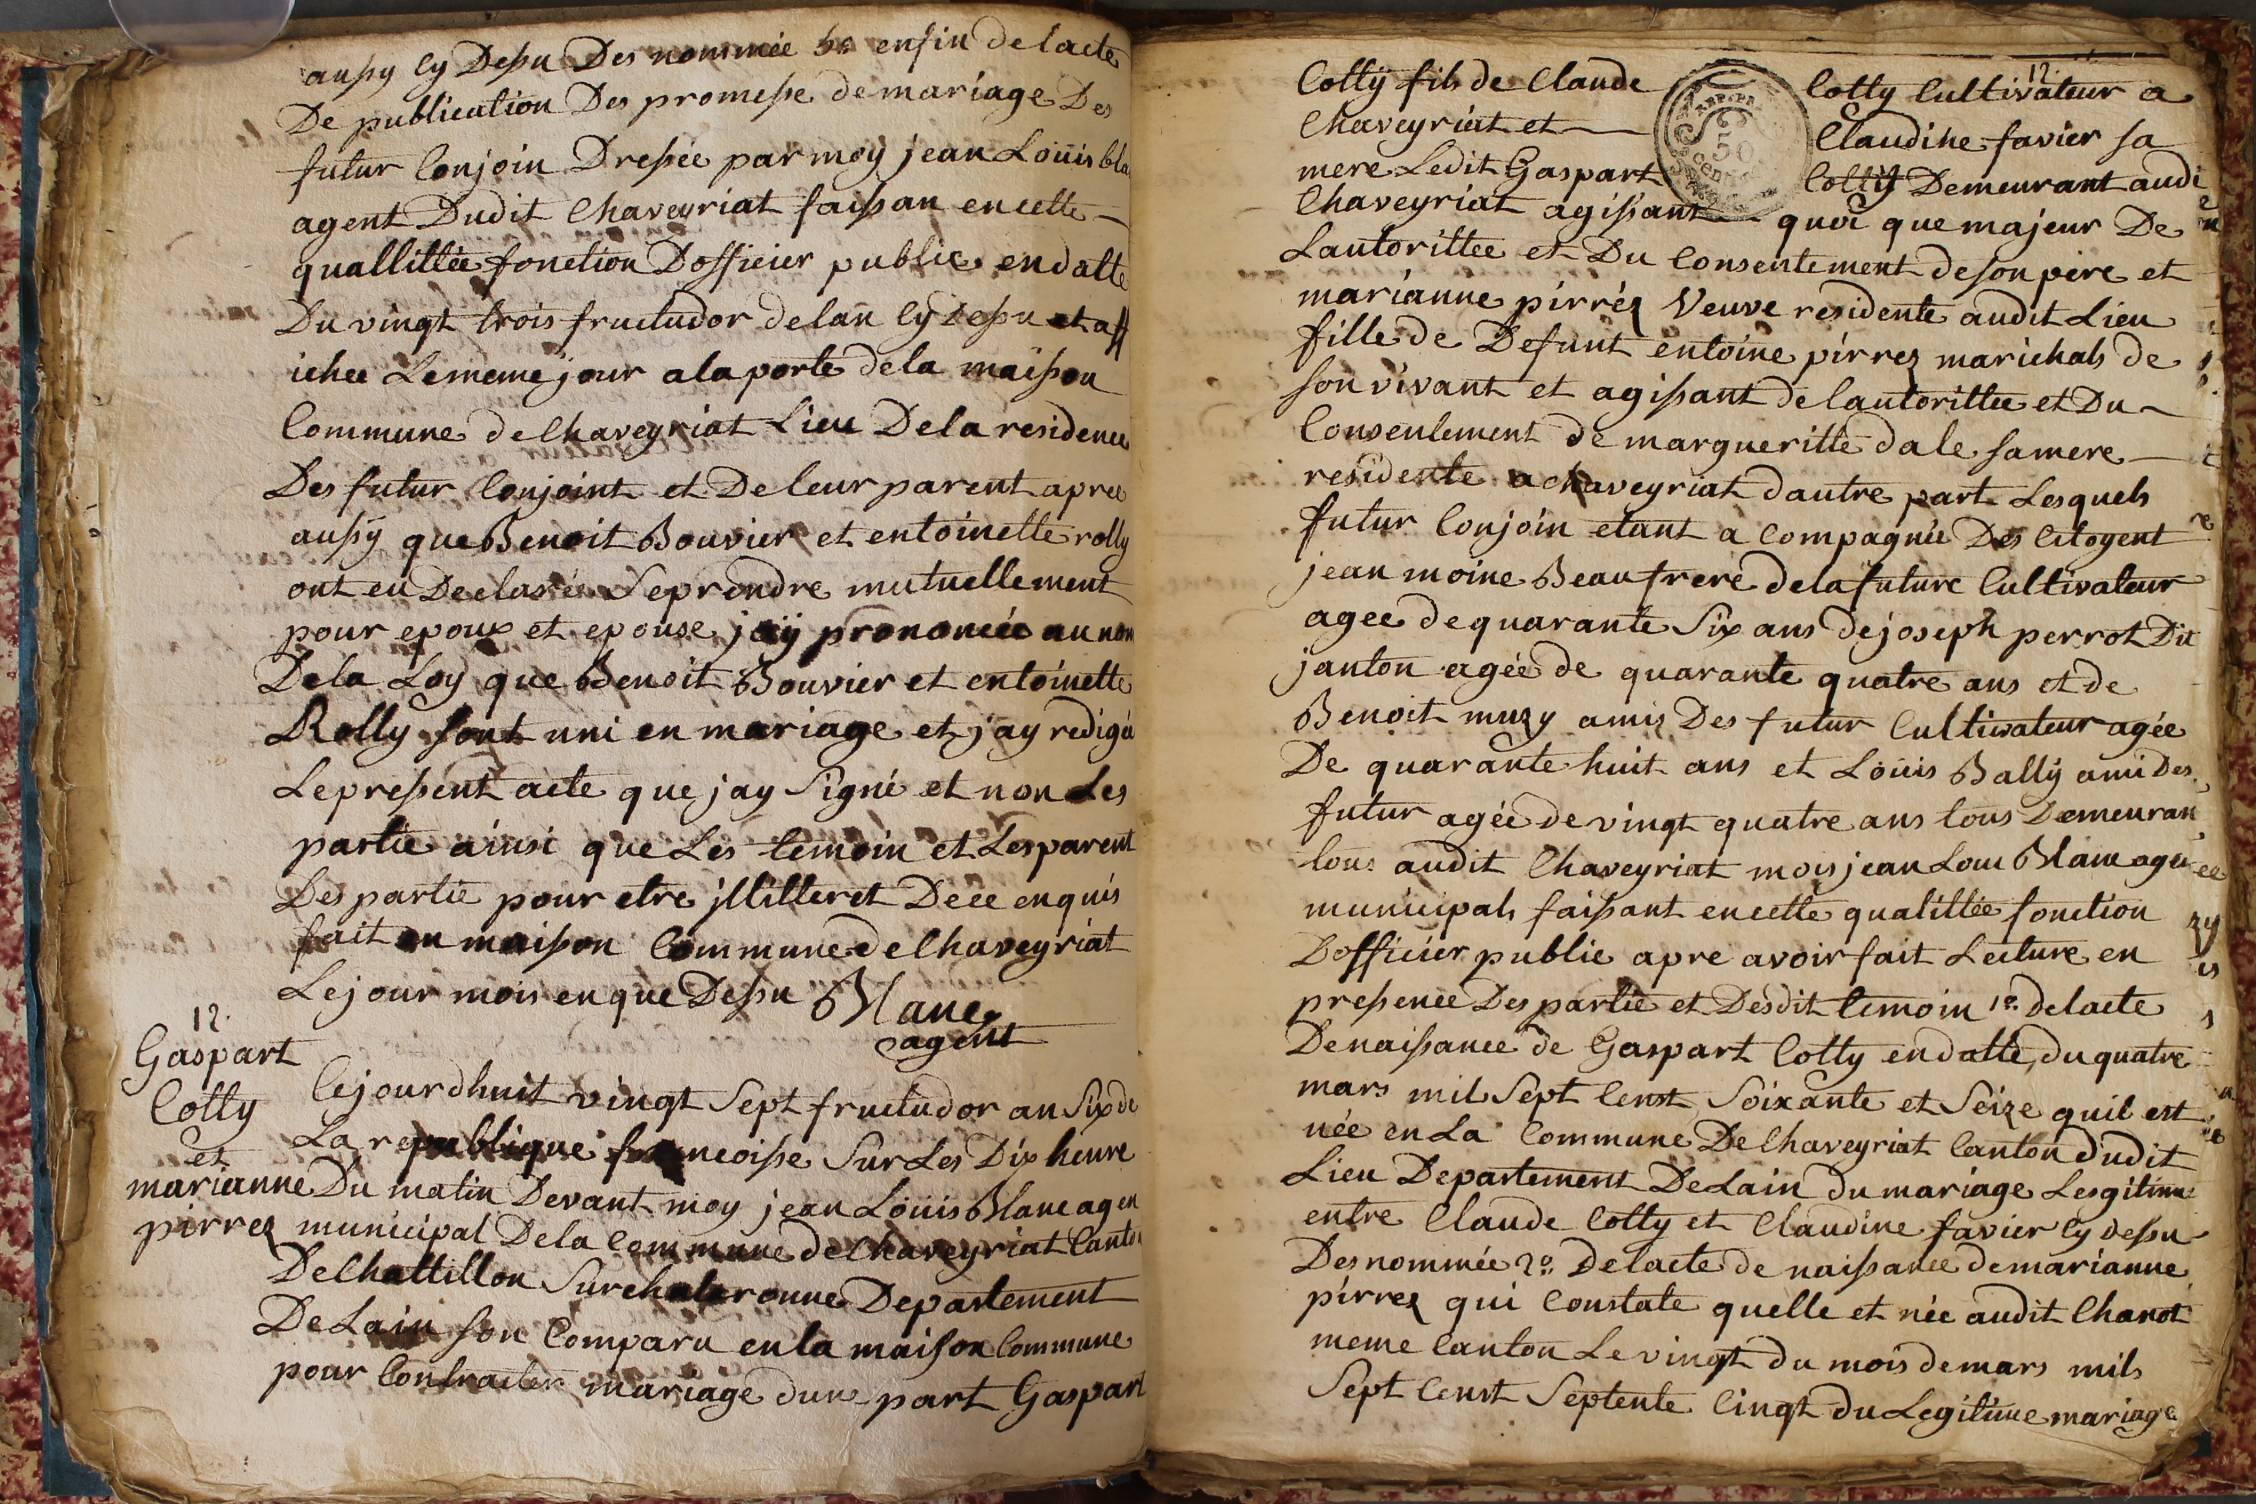 aussy cy Dessu Des nommée 5o enfin de lacte
De publication Des promesse de mariage Des
futur Conjoin Dressée par moy jean Loüis bla
agent Dudit Chaveyriat faissan en cette
quallittée fonction Dofficier public en datte
Du vingt trois fructudor de lan cy Dessu et aff
ichee Le meme jour a la porte de la maïsson
Commune de Chaveyriat Lieu De la residence
Des futur Conjoint et De leur parent apree
aussÿ que Benoit Bouvier et entoinette rolly
ont eu Declaré Se prendre mutuellement
pour epoux et epouse jaÿ prononcée au nom
De la Loy que Benoit Bouvier et entoinette
Rolly sont uni en mariage et jay redigée
Le pressent acte que jay Signé et non Les
partie ainsi que Les temoin et Les parent
Des partie pour etre jllitteret De ce enquis
fait en maisson Commune de Chaveyriat
Le jour mois en que Dessu Blanc
agent
12.
Gaspart
Cotty
et
marianne
pirrez
Cejourdhuit vingt Sept fructudor an Six de
La republique francoisse Sur Les Dix heure
Du matin Devant moy jean Loüis Blanc agen
municipal De la Commune de Chaveyriat Canton
De Chattillon Sur chalaronne Departement
De Lain son Comparu en la maison Commune
pour Contracter mariage dune part Gaspart
12.
Cottÿ fils de Claude Cotty Cultivateur a
Chaveyriat et Claudine favier sa
mere Ledit Gaspart Cotty Demeurant audi
REP. FR.
50
cent
Chaveyriat agissant quoi que majeur De
Lautorittee et Du Consentement de son pere et
marianne pirréz Veuve residente audit Lieu
fille de Defunt entoine pirrez marichals de
son vivant et agissant de lautorittee et Du
Consentement de margueritte dale sa mere
residente a chaveyriat dautre part Lesquels
futur Conjoin etant a Compagnée Des Citoyent
jean moine Beau frere de la future Cultivateur
agee de quarante Six ans de joseph perrot Dit
janton agée de quarante quatre ans et de
Benoit muzy amis Des futur Cultivateur agée
De quarante huit ans et Loüis Ballÿ ami Des
futur agée de vingt quatre ans tous Demeuran
tous audit Chaveyriat mois jean Loui Blanc agen
municipals faissant en cette qualittée fonction
Dofficier public apre avoir fait Lecture en
pressence Des partie et Desdit temoin 1o. de lacte
De naissance de Gaspart Cotty en datte du quatre
mars mil Sept Censt Soixante et Seize quil est
née en La Commune De Chaveyriat Canton dudit
Lieu Departement De Lain du mariage Lesgitime
entre Claude Cotty et Claudine favier Cy dessu
Des nommée 2o. De lacte de naissance de marianne
pirrez qui Constate quelle et née audit Chanot
meme Canton Le vingt du mois de mars mils
Sept Censt Septente Cinqt du Legitime mariage